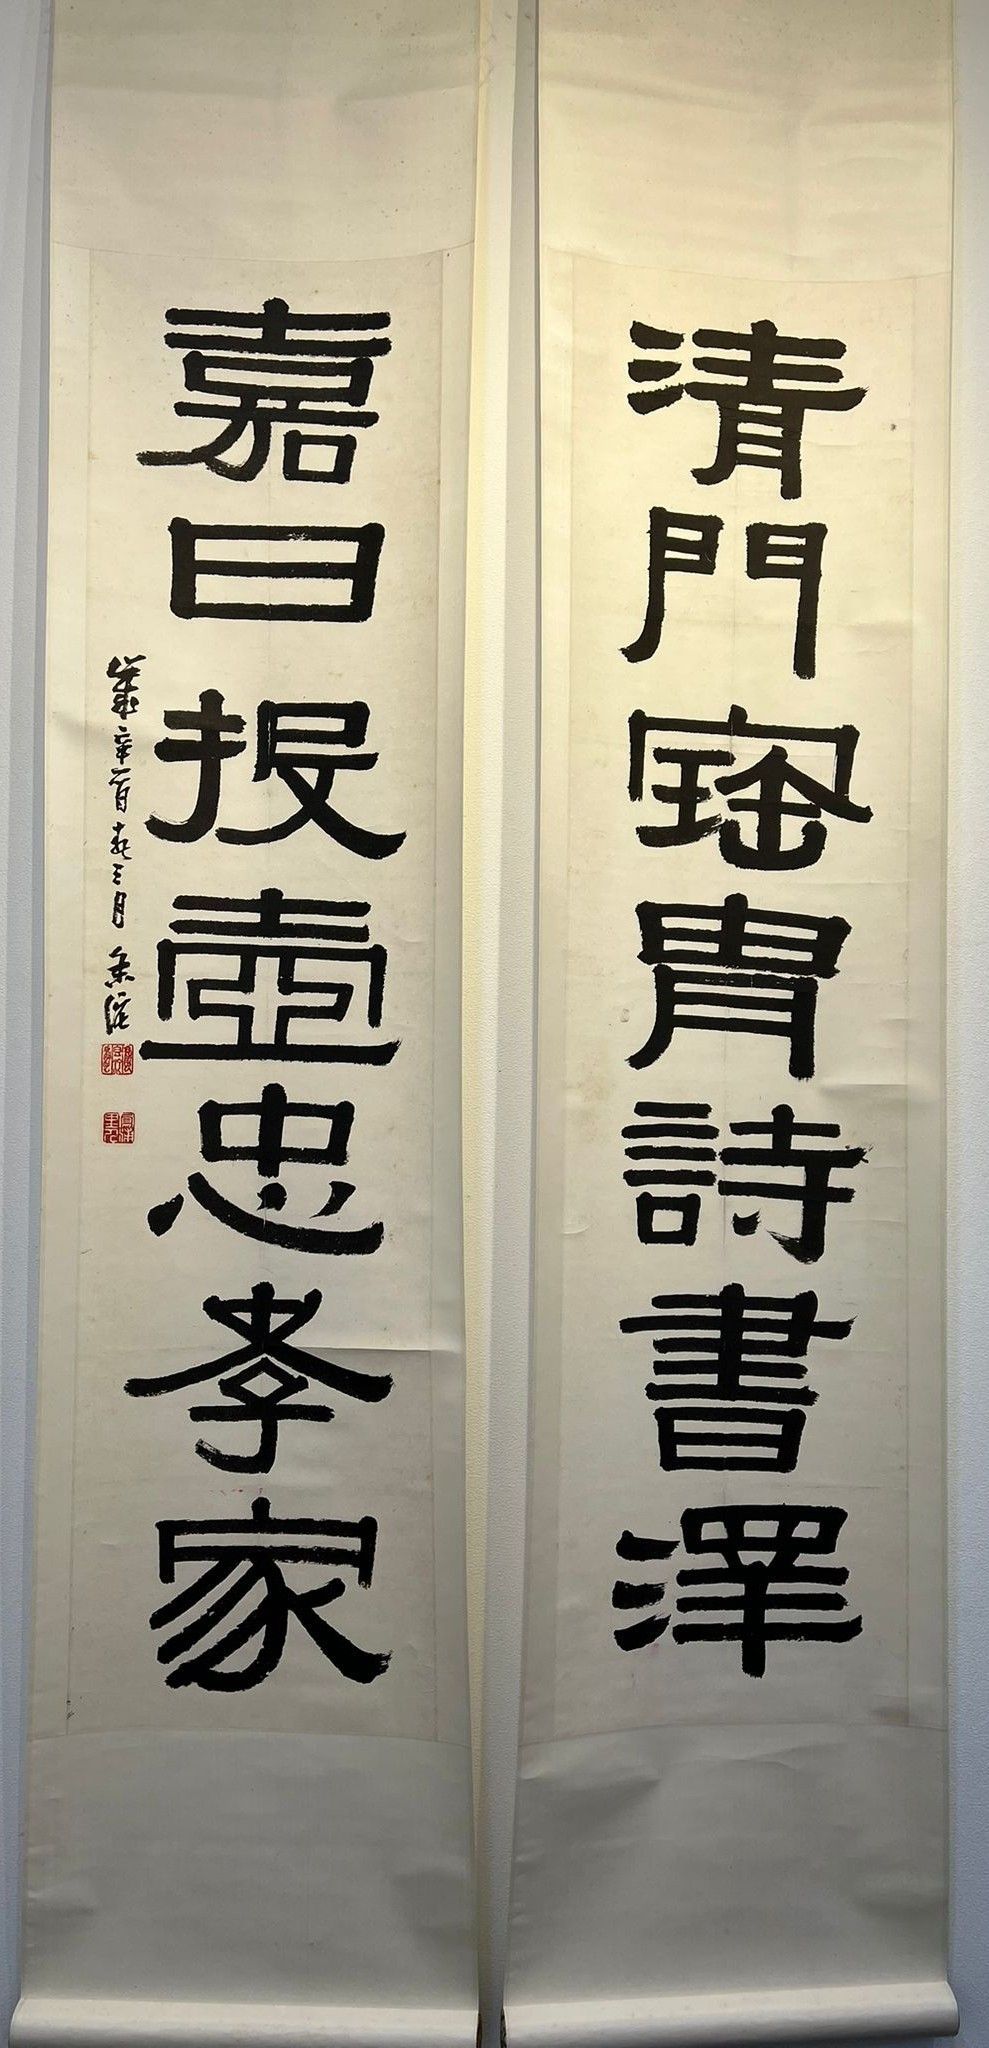 清門寶胄詩書澤
嘉日投壺忠孝家
歲辛酉春三月